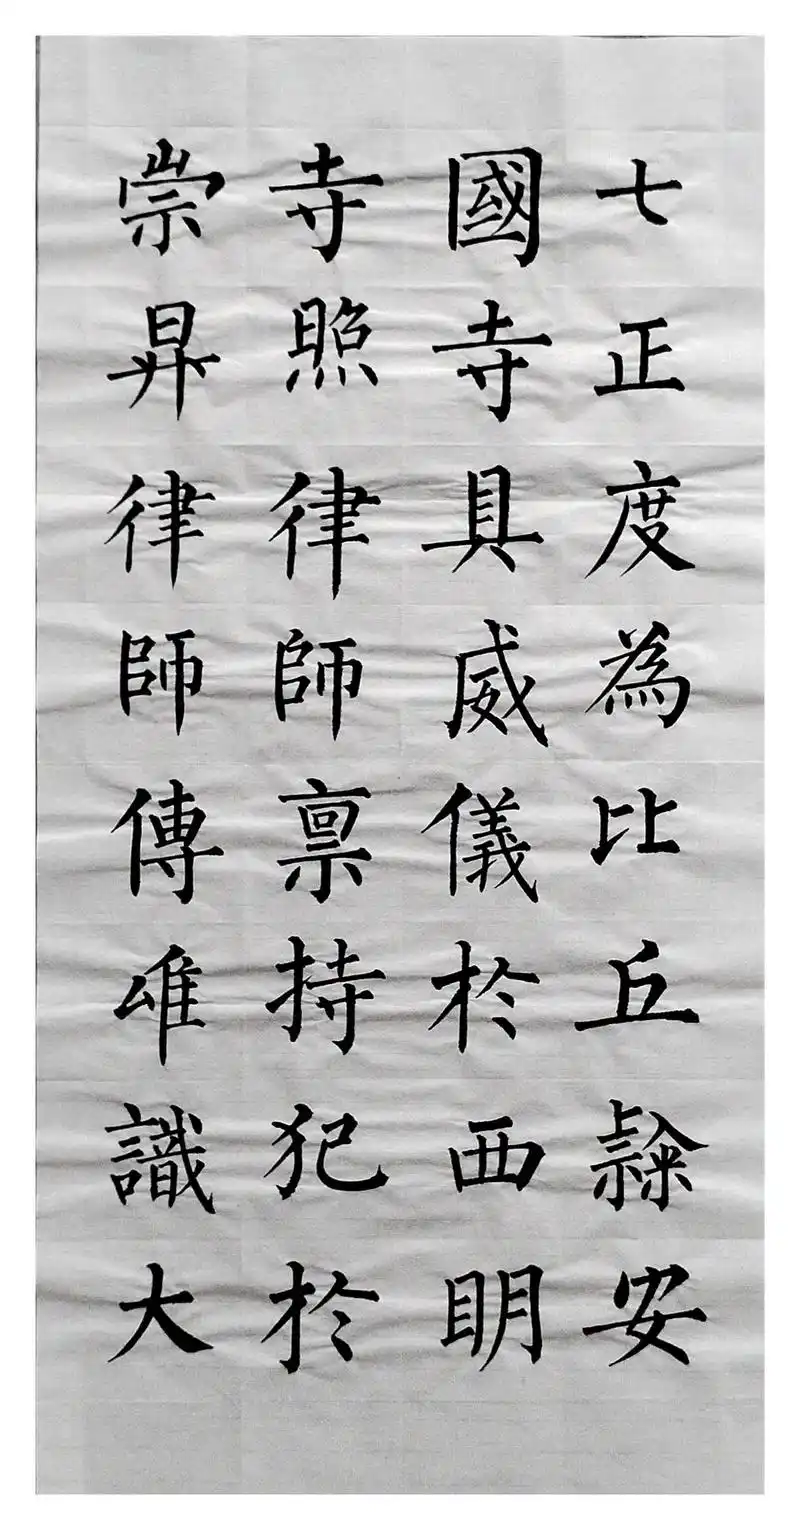 七正度為比丘隸安
國寺具威儀於西眀
寺照律師禀持犯於
崇昇律師傳唯識大